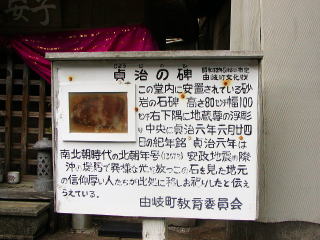 子安
貞治の碑
由岐町文化財
この堂内に安置されている砂
岩の石碑 高さ80㌢幅100
㌢右下隅に地蔵尊の浮彫
り 中央に貞治元年六月廿四
日の紀年銘 貞治元年は
南北朝時代の北朝年号
安政地震の際
沖
を見た地元
の信仰厚い人たちが此処に移しお祀りしたと伝
えうている。
由岐町教育委員会